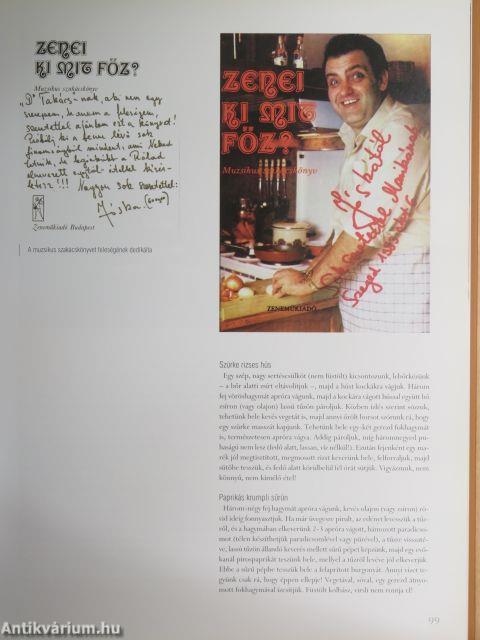 ZENEI
KI MIT FŐZ?
Muzsikus szakácskönyv
„D" Takács-nak, aki nem egy
szerepem, hanem a feleségem,
szeretettel ajánlom ezt a könyvet!
Próbálj ki a benne lévő sok
finomságból mindent, ami Neked
tetszik, és leginkább a Rólad
elnevezett
!!! Nagyon sok szeretettel:
Jóska
Zeneműkiadó Budapest
A muzsikus szakácskönyvet feleségének dedikálta
ZENEI
KI MIT
FŐZ?
Muzsikus szakácskönyv
Jóskától
szeretettel
Szeged
ZENEMŰKIADÓ
Szürke rizses hús
Egy szép, nagy sertéscsülköt (nem füstölt) kicsontozunk, lebőrközünk
– a bőr alatti zsírt eltávolítjuk –, majd a húst kockákra vágjuk. Három
fej vöröshagymát apróra vágunk, majd a kockára vágott hússal együtt bő
zsíron (vagy olajon) lassú tűzön pároljuk. Közben ízlés szerint sózzuk,
tehetünk bele kevés vegetát is, majd annyi őrölt borsot szórunk rá, hogy
egy szürke masszát kapjunk. Tehetünk bele egy-két gerezd fokhagymát
is, természetesen apróra vágva. Addig pároljuk, míg háromnegyed pu-
haságú nem lesz (fedő alatt, lassan, víz nélkül!). Ezután fejenként egy ma-
rék jól megtisztított, megmosott rizst keverünk bele, felforraljuk, majd
sütőbe tesszük, és fedő alatt körülbelül fél órát sütjük. Vigyázzunk, nem
könnyű, nem kímélő étel!
Paprikás krumpli sűrűn
Három-négy fej hagymát apróra vágunk, kevés olajon (vagy zsíron) rö-
vid ideig fonnyasztjuk. Ha már üvegesre pirult, az edényt levesszük a tűz-
ről, és a hagymában elkeverünk 2-3 apróra vágott, hámozott paradicso-
mot (télen készíthetjük paradicsomlével vagy pürével), a tűzre visszaté-
ve, lassú tűzön állandó keverés mellett sűrű pépet képzünk, majd egy evő-
kanál pirospaprikát teszünk bele, mellyel a tűzről levéve jól elkeverjük.
Ebbe a sűrű pépbe tesszük bele a felaprított burgonyát. Annyi vizet te-
gyünk csak rá, hogy éppen ellepje! Vegetával, sóval, egy gerezd átnyo-
mott fokhagymával ízesítjük. Füstölt kolbász, virsli nem ronnja el!
99
Antikvárium.hu